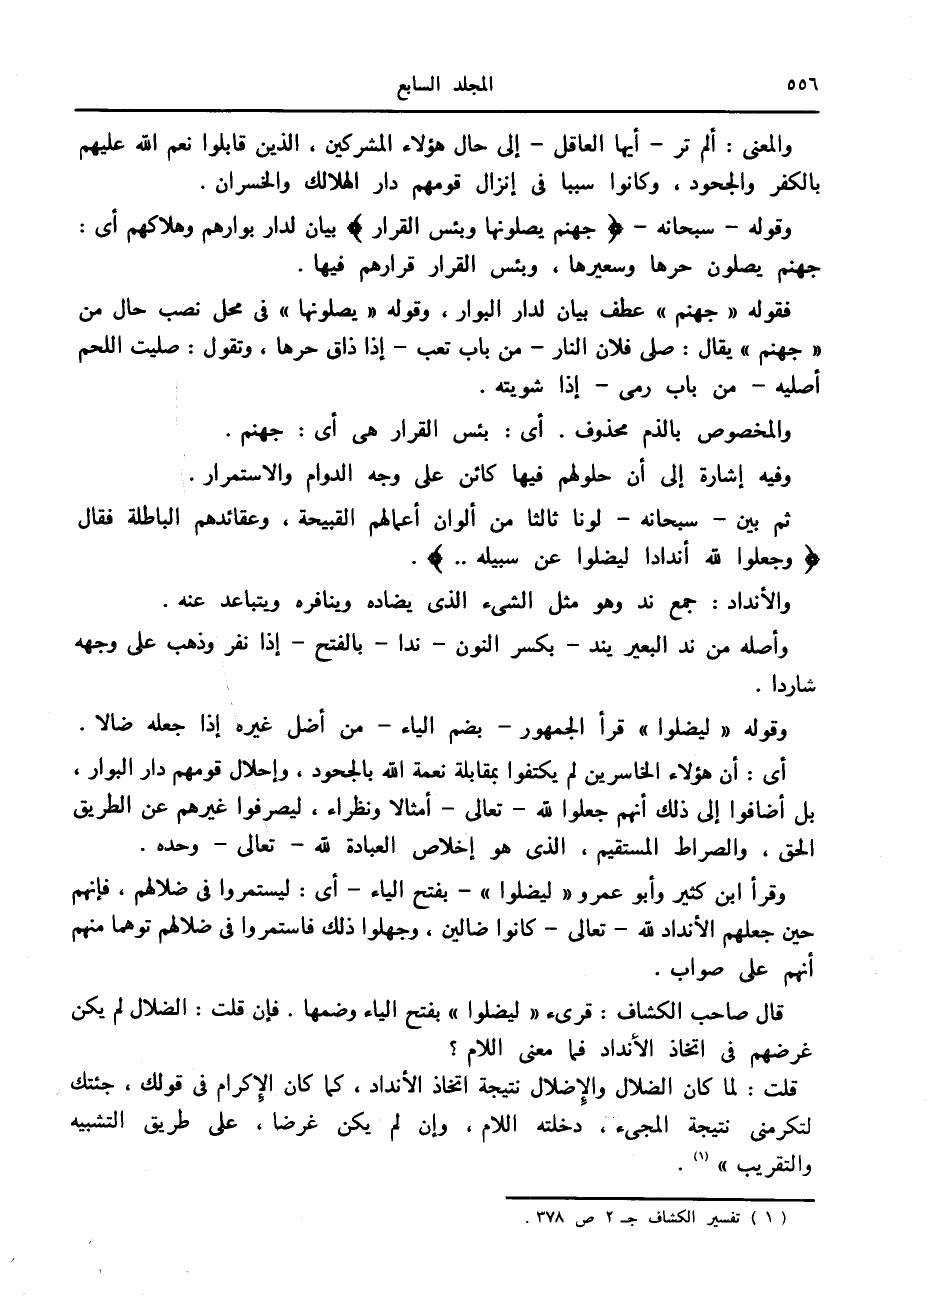 ٥٥٦ المجلد السابع
والمعنى : ألم تر – أيها العاقل – إلى حال هؤلاء المشركين ، الذين قابلوا نعم الله عليهم
بالكفر والجحود ، وكانوا سببا فى إنزال قومهم دار الهلالك والخسران .
وقوله – سبحانه – ﴿ جهنم يصلونها وبئس القرار ﴾ بيان لدار بوارهم وهلاكهم أى :
جهنم يصلون حرها وسعيرها ، وبئس القرار قرارهم فيها .
فقوله « جهنم » عطف بيان لدار البوار ، وقوله « يصلونها » فى محل نصب حال من
« جهنم » يقال : صلى فلان النار – من باب تعب – إذا ذاق حرها ، وتقول : صليت اللحم
أصليه – من باب رمى – إذا شويته .
والمخصوص بالذم محذوف . أى : بئس القرار هى أى : جهنم .
وفيه إشارة إلى أن حلولهم فيها كائن على وجه الدوام والاستمرار .
ثم بين – سبحانه – لونا ثالثا من ألوان أعمالهم القبيحة ، وعقائدهم الباطلة فقال
﴿ وجعلوا لله أندادا ليضلوا عن سبيله .. ﴾ .
والأنداد : جمع ند وهو مثل الشىء الذى يضاده وينافره ويتباعد عنه .
وأصله من ند البعير يند – بكسر النون – ندا – بالفتح – إذا نفر وذهب على وجهه
شاردا .
وقوله « ليضلوا » قرأ الجمهور – بضم الياء – من أضل غيره إذا جعله ضالا .
أى : أن هؤلاء الخاسرين لم يكتفوا بمقابلة نعمة الله بالجحود ، وإحلال قومهم دار البوار ،
بل أضافوا إلى ذلك أنهم جعلوا لله – تعالى – أمثالا ونظراء ، ليصرفوا غيرهم عن الطريق
الحق ، والصراط المستقيم ، الذى هو إخلاص العبادة لله – تعالى – وحده .
وقرأ ابن كثير وأبو عمرو « ليضلوا » – بفتح الياء – أى : ليستمروا فى ضلالهم ، فإنهم
حين جعلهم الأنداد لله – تعالى – كانوا ضالين ، وجهلوا ذلك فاستمروا فى ضلالهم توهما منهم
أنهم على صواب .
قال صاحب الكشاف : قرىء « ليضلوا » بفتح الياء وضمها . فإن قلت : الضلال لم يكن
غرضهم فى اتخاذ الأنداد فما معنى اللام ؟
قلت : لما كان الضلال والإضلال نتيجة اتخاذ الأنداد ، كما كان الإكرام فى قولك ، جئتك
لتكرمنى نتيجة المجىء ، دخلته اللام ، وإن لم يكن غرضا ، على طريق التشبيه
والتقريب » (١) .
( ١ ) تفسير الكشاف جـ ٢ ص ٣٧٨ .